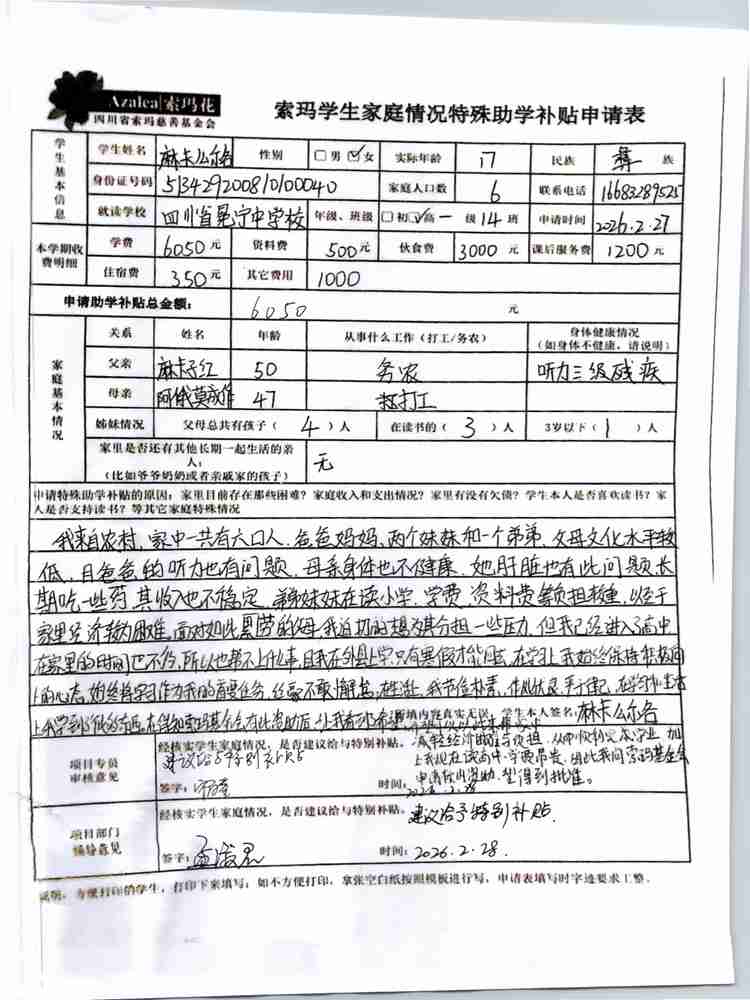 Azalea 索玛花
四川省索玛慈善基金会
索玛学生家庭情况特殊助学补贴申请表
学生基本信息 学生姓名 麻卡么尔各 性别 □男 ☑女 实际年龄 17 民族 彝 族
身份证号码 513429200810100040 家庭人口数 6 联系电话 16683289525
就读学校 四川省冕宁中学校 年级、班级 □初 ☑高 一 级 14 班 申请时间 2026.2.27
本学期收费明细 学费 6050 元 资料费 500 元 伙食费 3000 元 课后服务费 1200 元
住宿费 350 元 其它费用 1000
申请助学补贴总金额: 6050 元
家庭基本情况 关系 姓名 年龄 从事什么工作(打工/务农) 身体健康情况(如身体不健康,请说明)
父亲 麻卡子红 50 务农 听力三级残疾
母亲 阿俄莫 47 打工
姊妹情况 父母总共有孩子( 4 )人 在读书的( 3 )人 3岁以下( 1 )人
家里是否还有其他长期一起生活的亲人:
(比如爷爷奶奶或者亲戚家的孩子) 无
申请特殊助学补贴的原因:家里目前存在那些困难?家庭收入和支出情况?家里有没有欠债?学生本人是否喜欢读书?家
人是否支持读书?等其它家庭特殊情况
我来自农村,家中一共有六口人,爸爸妈妈、两个妹妹和一个弟弟,父母文化水平较
低,且爸爸的听力也有问题,母亲身体也不健康,她肝脏也有些问题,长
期吃一些药,其收入也不稳定,弟弟妹妹在读小学,学费、资料费等负担较重,以至于
家里经济较为困难,面对如此黑劳的父母,我迫切的想为其分担一些压力,但我已经进入高中
在家里的时间也不多,所以也帮不上什么事,且我在外县上学,只有寒假才能回家,在学习上我始终保持积极向
上的心态,始终将学习作为我的首要任务,在生活上,我节俭朴素,在学习和生活
上我学到 所填内容真实无误,学生本人签名:麻卡么尔各
减轻经济 负担,从中顺利完成学业,加
上我现在读高中,学费昂贵,因此我向索玛基金会
申请 资助,望得到批准。
项目专员审核意见 经核实学生家庭情况,是否建议给与特别补贴。
建议给予特别
签字: 时间: 2026.2.28
项目部门领导意见 经核实学生家庭情况,是否建议给与特别补贴。建议给予特别补贴.
签字: 时间: 2026.2.28.
说明:方便打印的学生,打印下来填写;如不方便打印,拿张空白纸按照模板进行写,申请表填写时字迹要求工整。